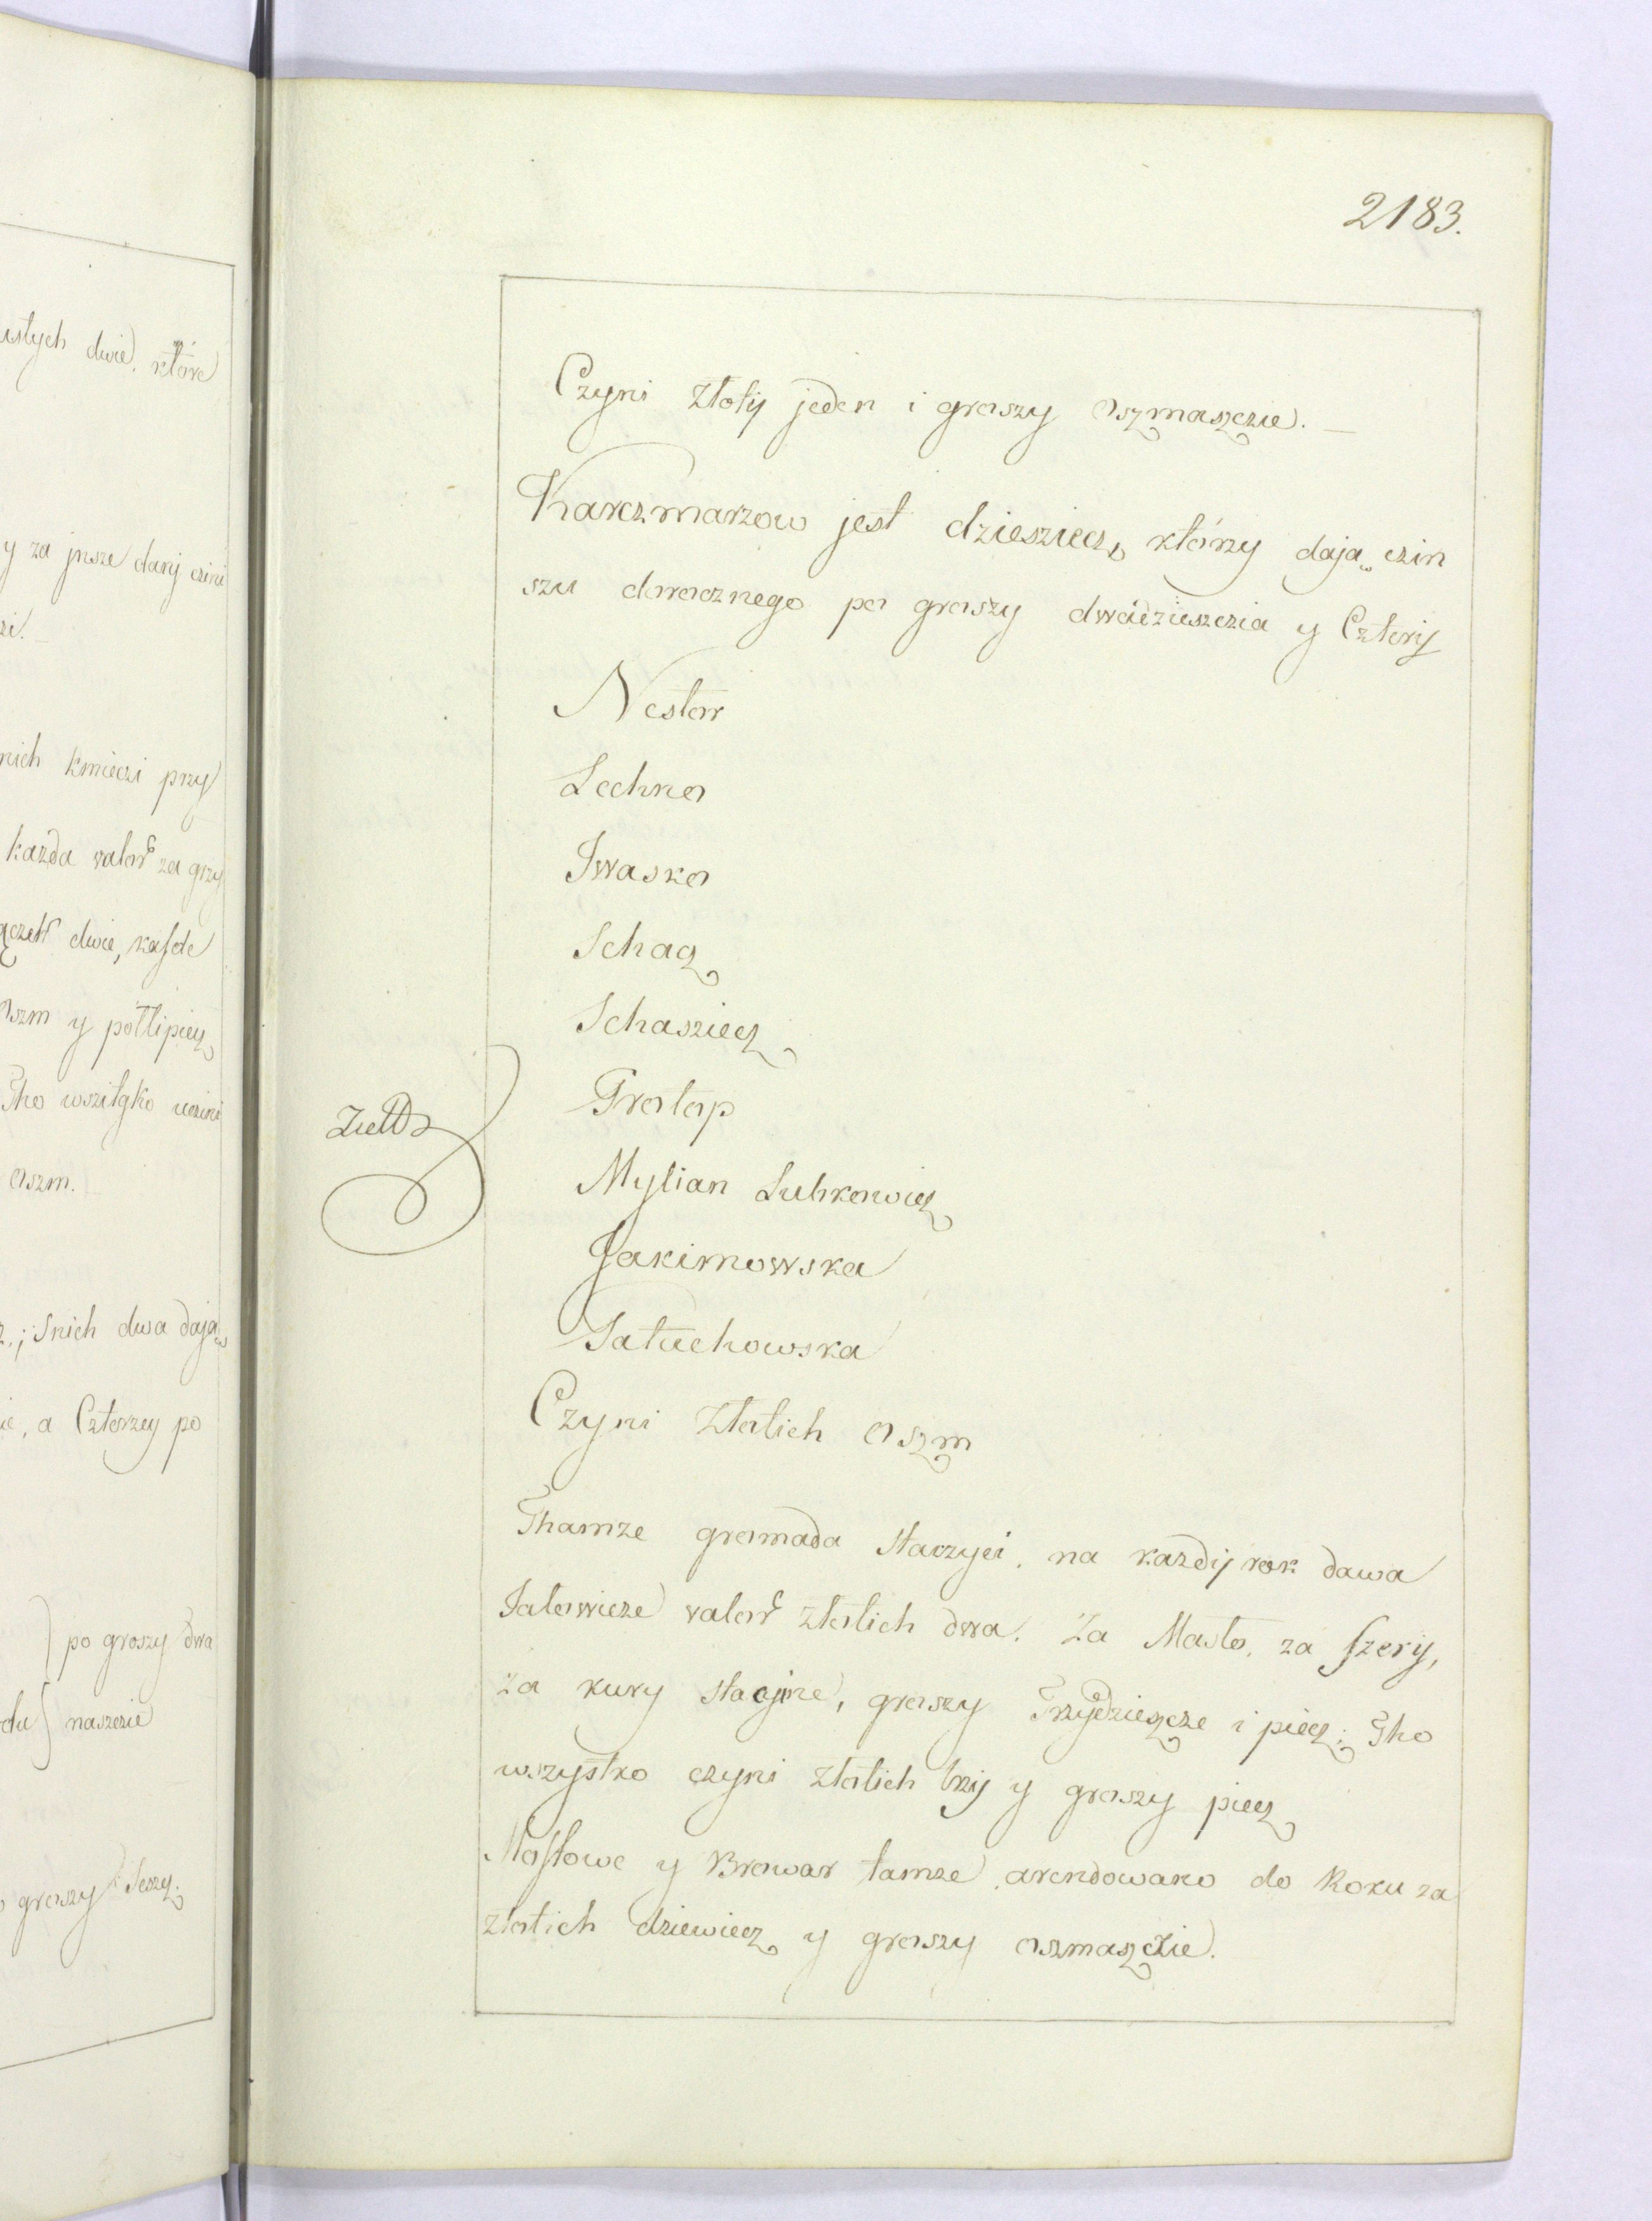 ustych dwie, które
y za jnsze darij czini
nich kmieczi przy
każda valor za grzy
dwie, kasde
oszm y półtipięcz
Tho wszitgko uczini
oszm.
; Snich dwa dają
, a Czterzey po
po groszy dwa
naszczie
groszy Seszcz.
2183.
Czyni złotij jeden i groszy oszmaszczie. _
Karczmarzow jest dziesziecz, którzy dają czin
szu dorocznego po groszy dwadzieszczia y Czterij
Nestor
Lechno
Iwasko
Schacz
Schasziecz
Protop
Mylian Luhkowicz
Jakimowska
Satuchowska
Czyni Złotich oszm
Thamze gromada starzyei, na kazdij rok dawa
Jalowicze valor złotich dwa. Za Masto, za szery,
za kury stacjine, groszy Trzydzieszcze i piecz; Tho
wszystko czyni złotich trzij y groszy piecz
Mostowe y Browar tamze arendowano do Roku za
złotich dziewiecz y groszy oszmaszczie.